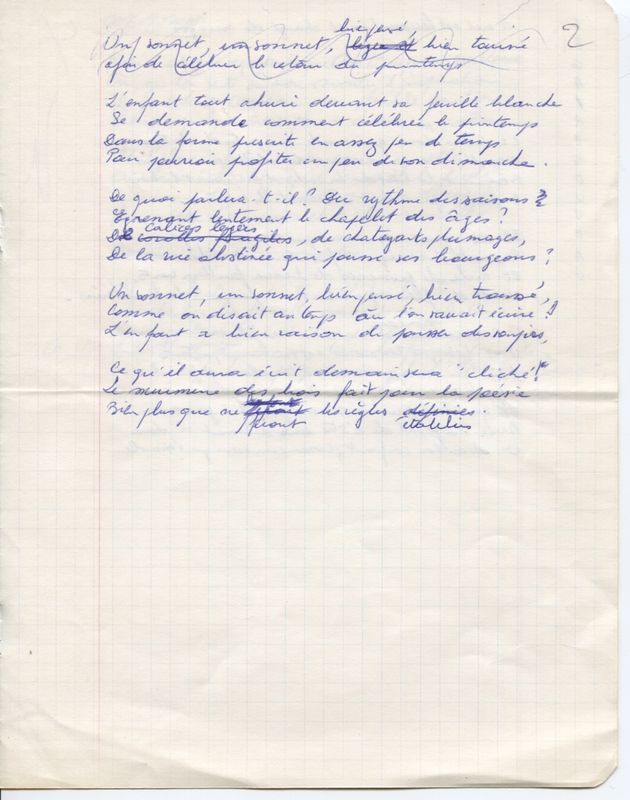 2
bien pensé
Un sonnet, un sonnet, léger et bien tourné
afin de célébrer le retour du printemps
L'enfant tout ahuri devant sa feuille blanche
Se demande comment célébrer le printemps
Dans la forme prescrite en assez peu de temps
Pour pouvoir profiter un peu de son dimanche.
De quoi parlera-t-il? Du rythme des saisons?
Egrenant lentement le chapelet des âges?
calices légers
De corolles fragiles, de chatoyants plumages,
De la vie obstinée qui pousse ses bourgeons?
Un sonnet, un sonnet, bien pensé, bien troussé,
Comme on disait au temps où l'on savait écrire!
L'enfant a bien raison de pousser des soupirs,
Ce qu'il aura écrit demain sera "cliché"!
Le murmure des bois fait pour la poésie
Bien plus que ne les règles définies.
feront établies